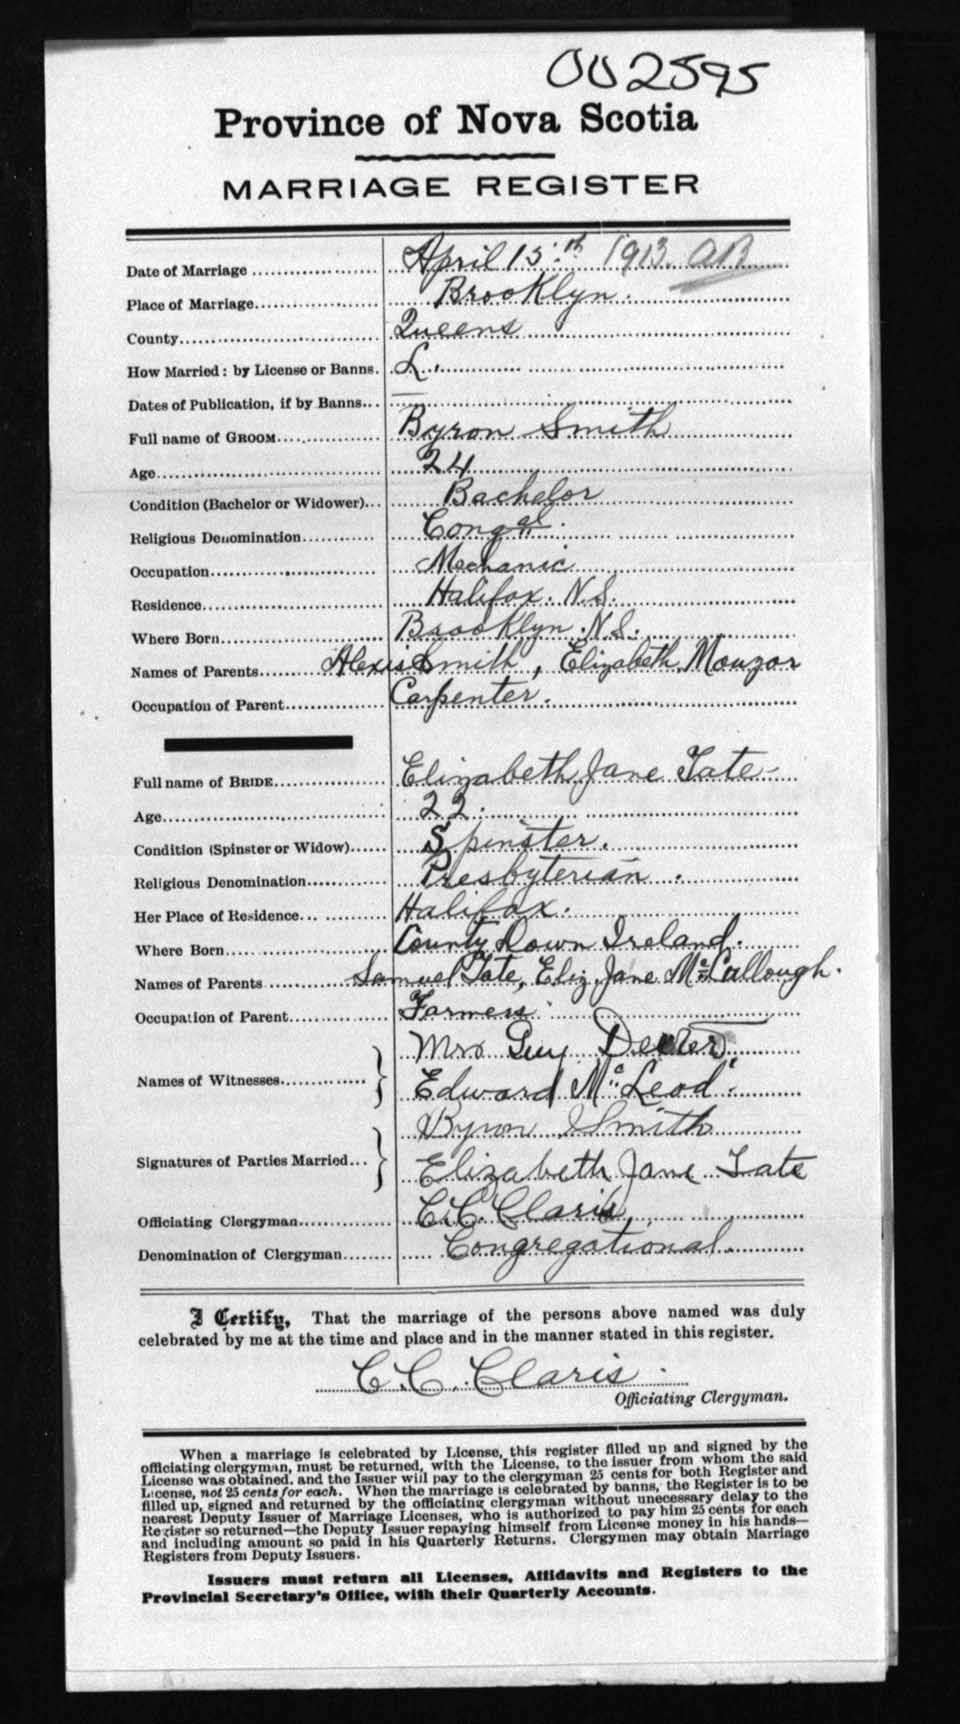 002595
Province of Nova Scotia
MARRIAGE REGISTER
Date of Marriage April 15th 1913. AB
Place of Marriage Brooklyn.
County Queens
How Married: by License or Banns. L.
Dates of Publication, if by Banns —
Full name of GROOM Byron Smith
Age 24
Condition (Bachelor or Widower) Bachelor
Religious Denomination Congal.
Occupation Mechanic
Residence Halifax. N.S.
Where Born Brooklyn. N.S.
Names of Parents Alexis Smith, Elizabeth Mouzar
Occupation of Parent Carpenter.
Full name of BRIDE Elizabeth Jane Tate
Age 22.
Condition (Spinster or Widow) Spinster.
Religious Denomination Presbyterian.
Her Place of Residence Halifax.
Where Born County Down Ireland.
Names of Parents Samuel Tate, Eliz. Jane McCullough.
Occupation of Parent Farmers
Mrs Guy Dexter
Names of Witnesses Edward McLeod.
Byron Smith
Signatures of Parties Married Elizabeth Jane Tate
Officiating Clergyman C.C. Claris
Denomination of Clergyman Congregational
I Certify, That the marriage of the persons above named was duly
celebrated by me at the time and place and in the manner stated in this register.
C.C. Claris.
Officiating Clergyman.
When a marriage is celebrated by License, this register filled up and signed by the
officiating clergyman, must be returned, with the License, to the issuer from whom the said
License was obtained, and the Issuer will pay to the clergyman 25 cents for both Register and
License, not 25 cents for each. When the marriage is celebrated by banns, the Register is to be
filled up, signed and returned by the officiating clergyman without unnecessary delay to the
nearest Deputy Issuer of Marriage Licenses, who is authorized to pay him 25 cents for each
Register so returned—the Deputy Issuer repaying himself from License money in his hands—
and including amount so paid in his Quarterly Returns. Clergymen may obtain Marriage
Registers from Deputy Issuers.
Issuers must return all Licenses, Affidavits and Registers to the
Provincial Secretary's Office, with their Quarterly Accounts.